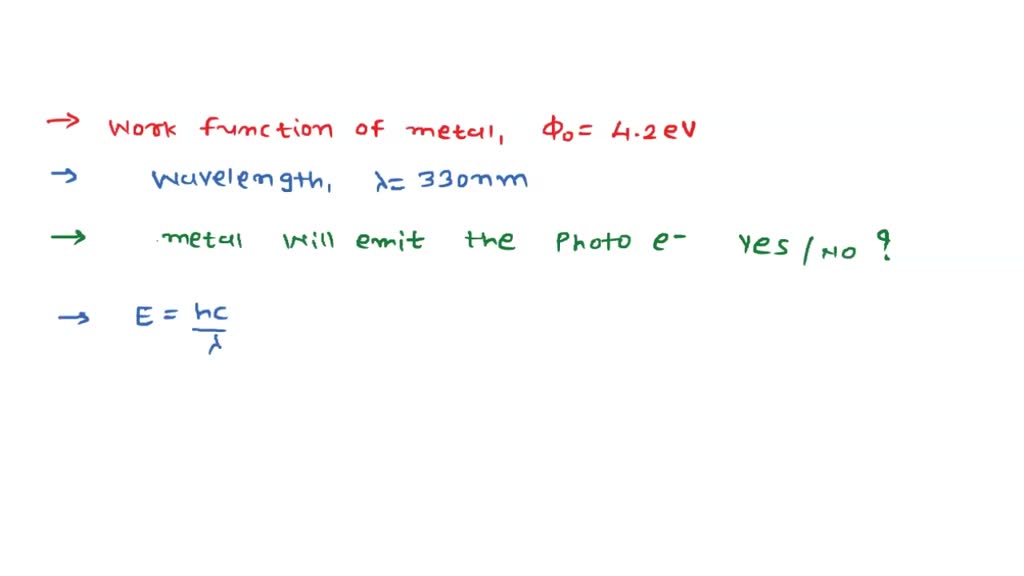 → Work function of metal, Φ₀ = 4.2 eV
→ Wavelength, λ = 330nm
→ metal will emit the Photo e⁻ Yes / No ?
→ E = hc/λ